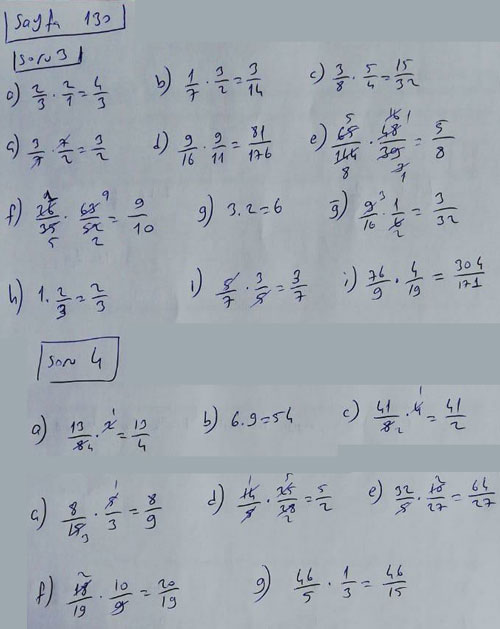 Sayfa 130
Soru 3
a) 2/3 · 2/1 = 4/3 b) 1/7 · 3/2 = 3/14 c) 3/8 · 5/4 = 15/32
ç) 3/7 · 7/2 = 3/2 d) 9/16 · 9/11 = 81/176 e) 65/144 · 48/39 = 5/8
f) 36/35 · 63/52 = 9/10 g) 3.2=6 ğ) 9/16 · 1/6 = 3/32
h) 1 · 2/3 = 2/3 ı) 5/7 · 3/5 = 3/7 i) 76/9 · 4/19 = 304/171
Soru 4
a) 13/8 · 2 = 13/4 b) 6.9=54 c) 41/8 · 4 = 41/2
ç) 8/15 · 5/3 = 8/9 d) 14/5 · 25/28 = 5/2 e) 32/5 · 10/27 = 64/27
f) 18/19 · 10/9 = 20/19 g) 46/5 · 1/3 = 46/15